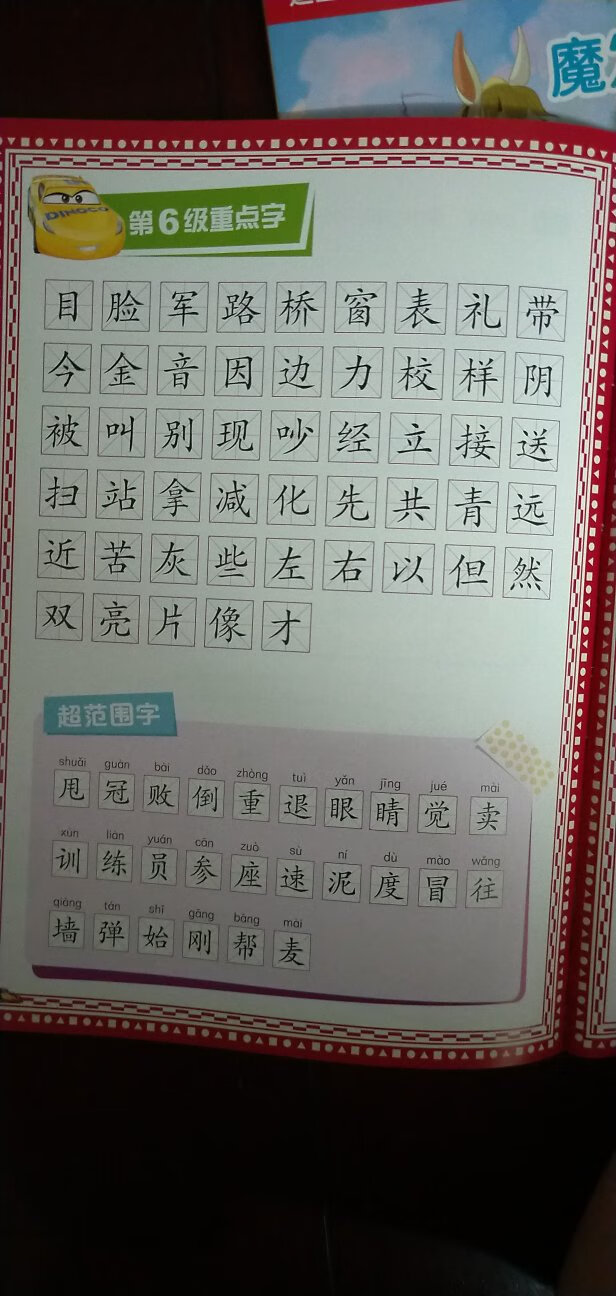 魔
DINOCO
第6级重点字
目 脸 军 路 桥 窗 表 礼 带
今 金 音 因 边 力 校 样 阴
被 叫 别 现 吵 经 立 接 送
扫 站 拿 减 化 先 共 青 远
近 苦 灰 些 左 右 以 但 然
双 亮 片 像 才
超范围字
shuǎi guàn bài dǎo zhòng tuì yǎn jīng jué mài
甩 冠 败 倒 重 退 眼 睛 觉 卖
xùn liàn yuán cān zuò sù ní dù mào wǎng
训 练 员 参 座 速 泥 度 冒 往
qiáng tán shǐ gāng bāng mài
墙 弹 始 刚 帮 麦